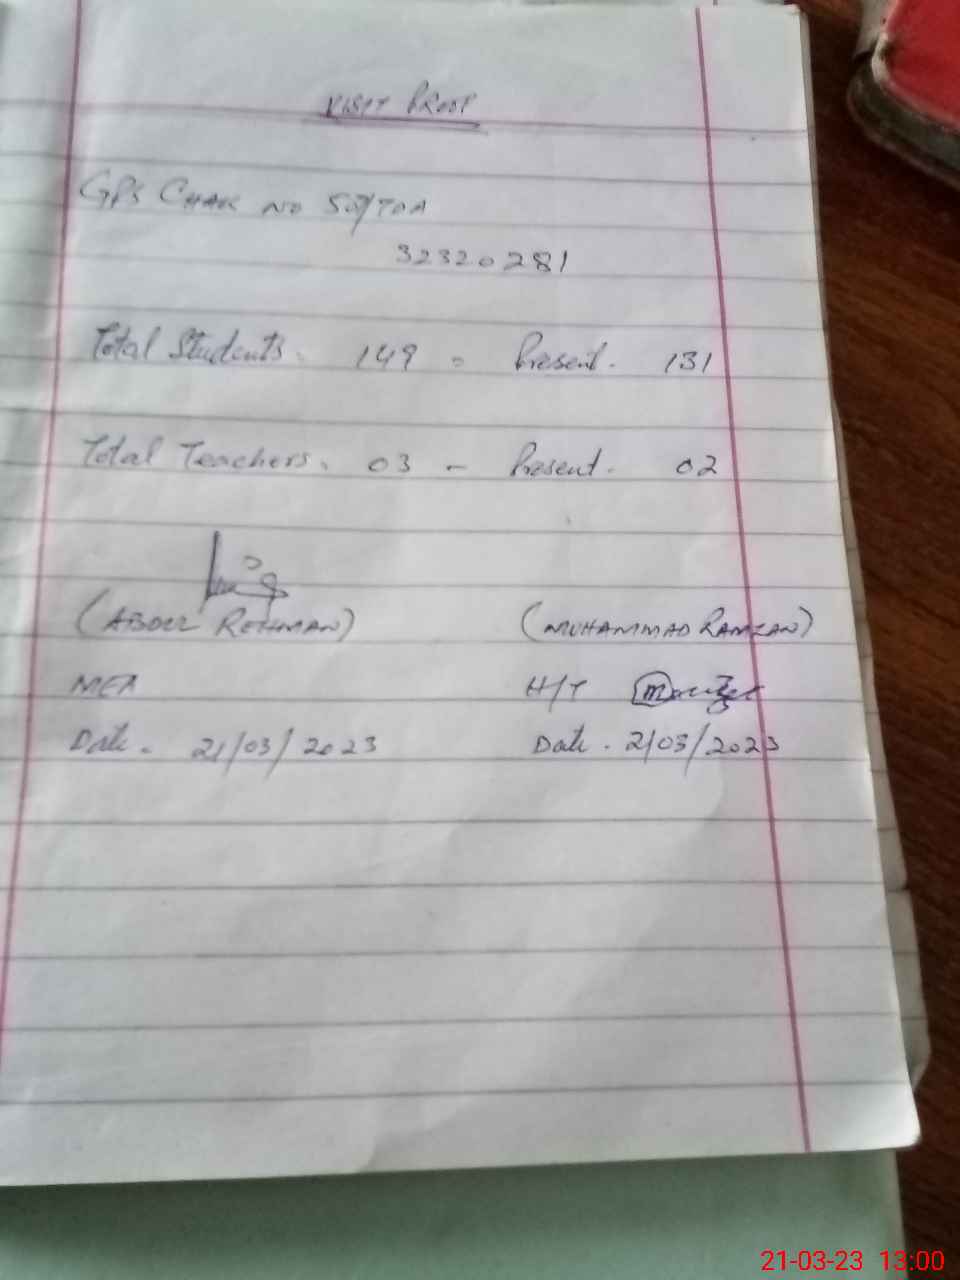 VISIT PROOF
GPS CHAK NO 507/TDA
32320281
Total Students. 149 - Present. 131
Total Teachers. 03 - Present. 02
(ABDUL REHMAN) (MUHAMMAD RAMZAN)
MEA H/T
Date. 21/03/2023 Date. 21/03/2023
21-03-23 13:00